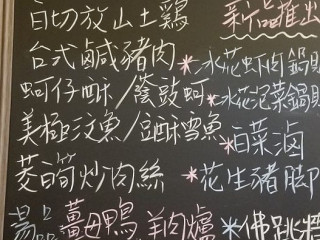 白切放山土鷄
新品推出
台式鹹豬肉
*水花虾肉鍋貼
蚵仔酥/蔭豉蚵
*水花泡菜鍋貼
美極沒魚/豆酥鱈魚
*白菜滷
茭白筍炒肉絲
*花生豬脚
湯品 薑母鴨 羊肉爐
*佛跳牆